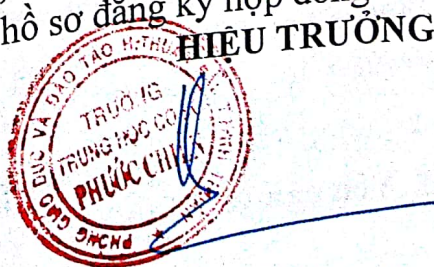 hồ sơ đăng ký hợp đồng
HIỆU TRƯỞNG
PHÒNG GIÁO DỤC VÀ ĐÀO TẠO H.THUẬN
TRƯỜNG
TRUNG HỌC CƠ
PHƯỚC